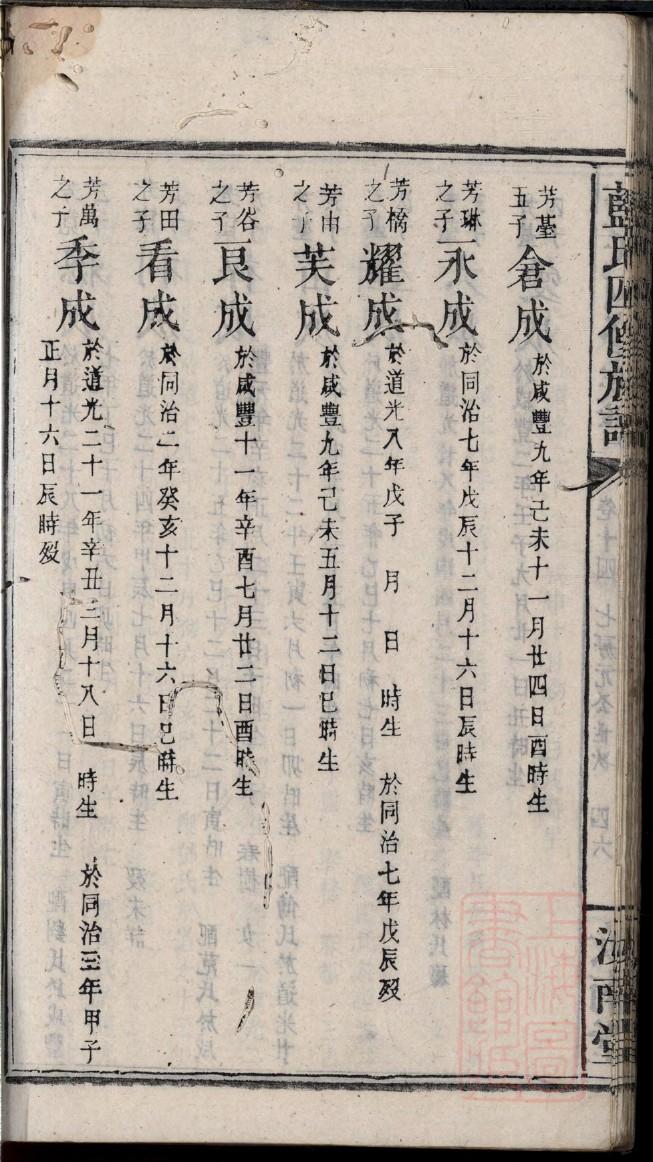 藍氏四修族譜 卷十四 七房元 世次 四六 汝南堂
芳臺五子倉成 於咸豐九年己未十一月廿四日酉時生
芳琳之子永成 於同治七年戊辰十二月十六日辰時生
芳橋之子耀成 於道光八年戊子 月 日 時生 於同治七年戊辰歿
芳由之子芙成 於咸豐九年己未五月十二日巳時生
芳谷之子艮成 於咸豐十一年辛酉七月廿二日酉時生
芳田之子看成 於同治二年癸亥十二月十六日巳時生
芳萬之子季成 於道光二十一年辛丑三月十八日 時生 於同治三年甲子
正月十六日辰時歿
上海圖書館藏